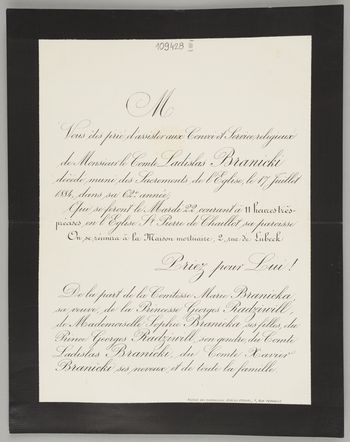 109428 III
M
Vous êtes prié d'assister aux Convoi et Service religieux
de Monsieur le Comte Ladislas Branicki
décédé muni des Sacrements de l'Eglise, le 17 Juillet
1884, dans sa 62me année,
Qui se feront le Mardi 22 courant à 11 heures très-
précises en l'Eglise St. Pierre de Chaillot, sa paroisse.
On se réunira à la Maison mortuaire, 2, rue de Lubeck.
Priez pour Lui!
De la part de la Comtesse Marie Branicka
sa veuve, de la Princesse Georges Radziwill,
de Mademoiselle Sophie Branicka ses filles, du
Prince Georges Radziwill, son gendre, du Comte
Ladislas Branicki, du Comte Xavier
Branicki ses neveux, et de toute la famille.